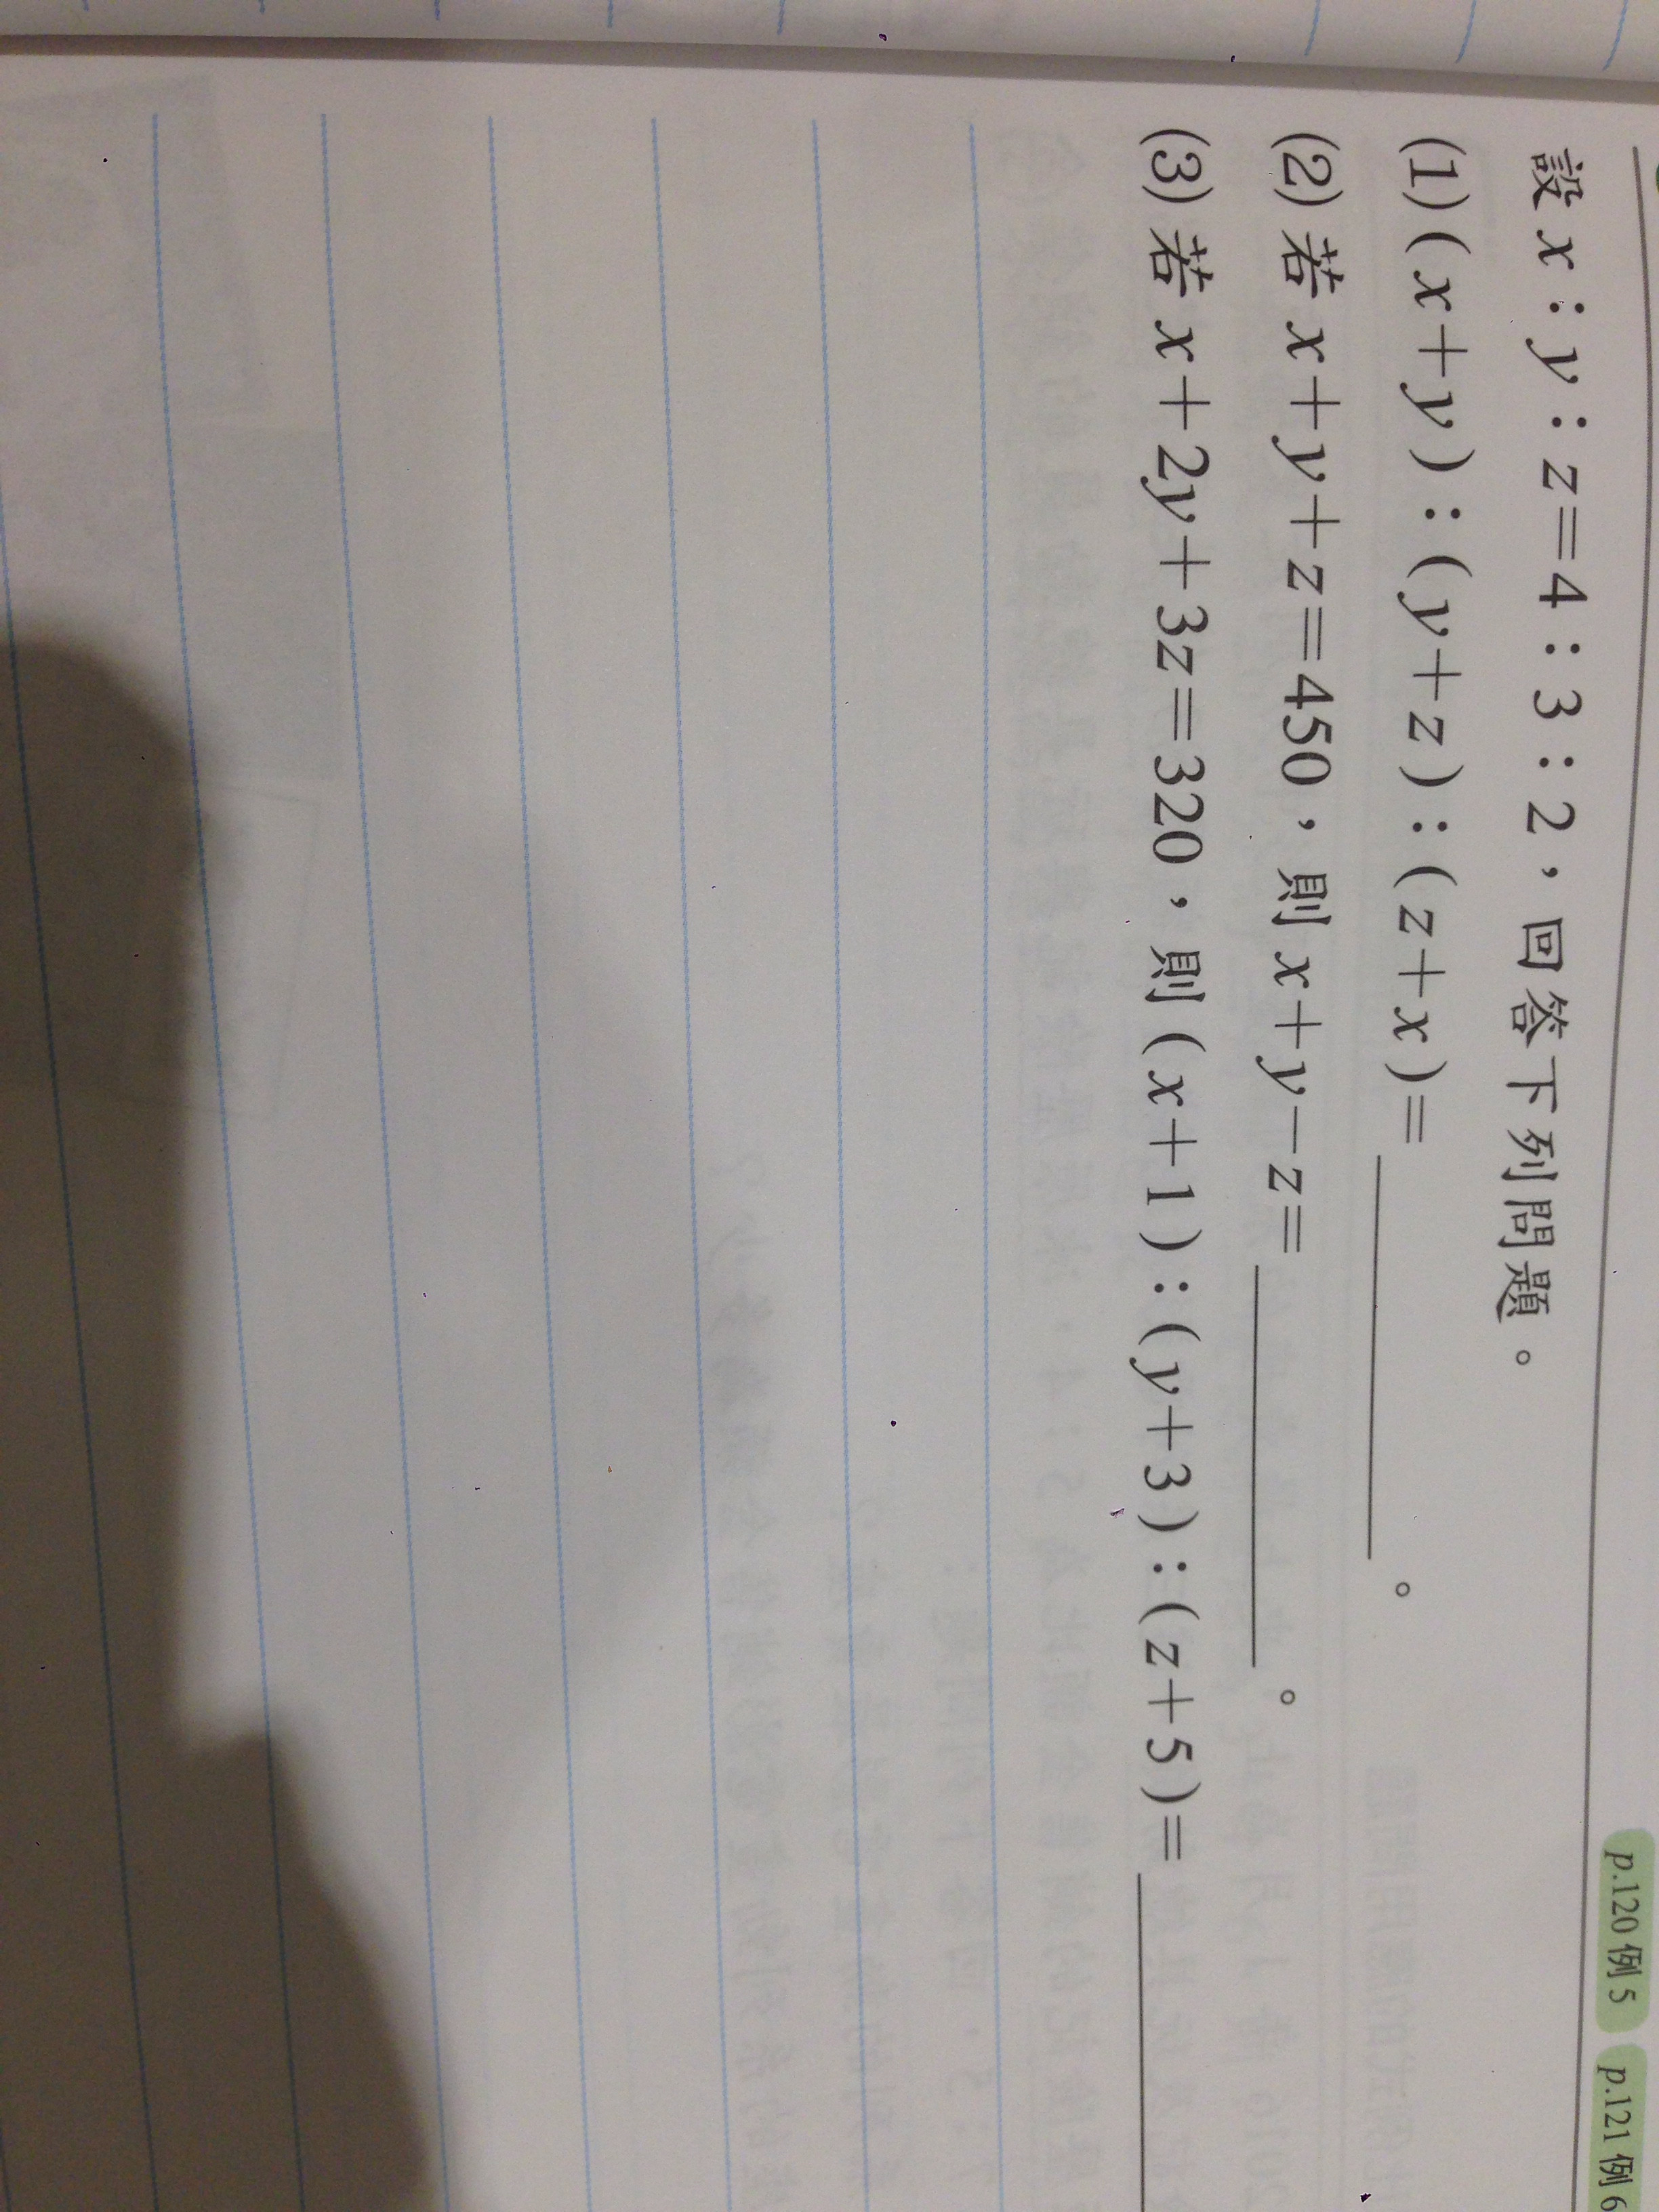 p.120 例 5 p.121 例 6
設 x：y：z＝4：3：2，回答下列問題。
(1)(x＋y)：(y＋z)：(z＋x)＝＿＿＿＿＿＿。
(2)若 x＋y＋z＝450，則 x＋y－z＝＿＿＿＿＿＿。
(3)若 x＋2y＋3z＝320，則(x＋1)：(y＋3)：(z＋5)＝＿＿＿＿＿＿